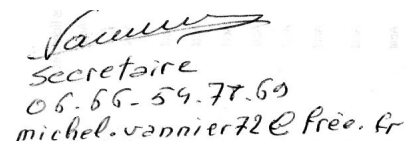 Secretaire
06.66-54.77.69
michel.vannier72@free.fr